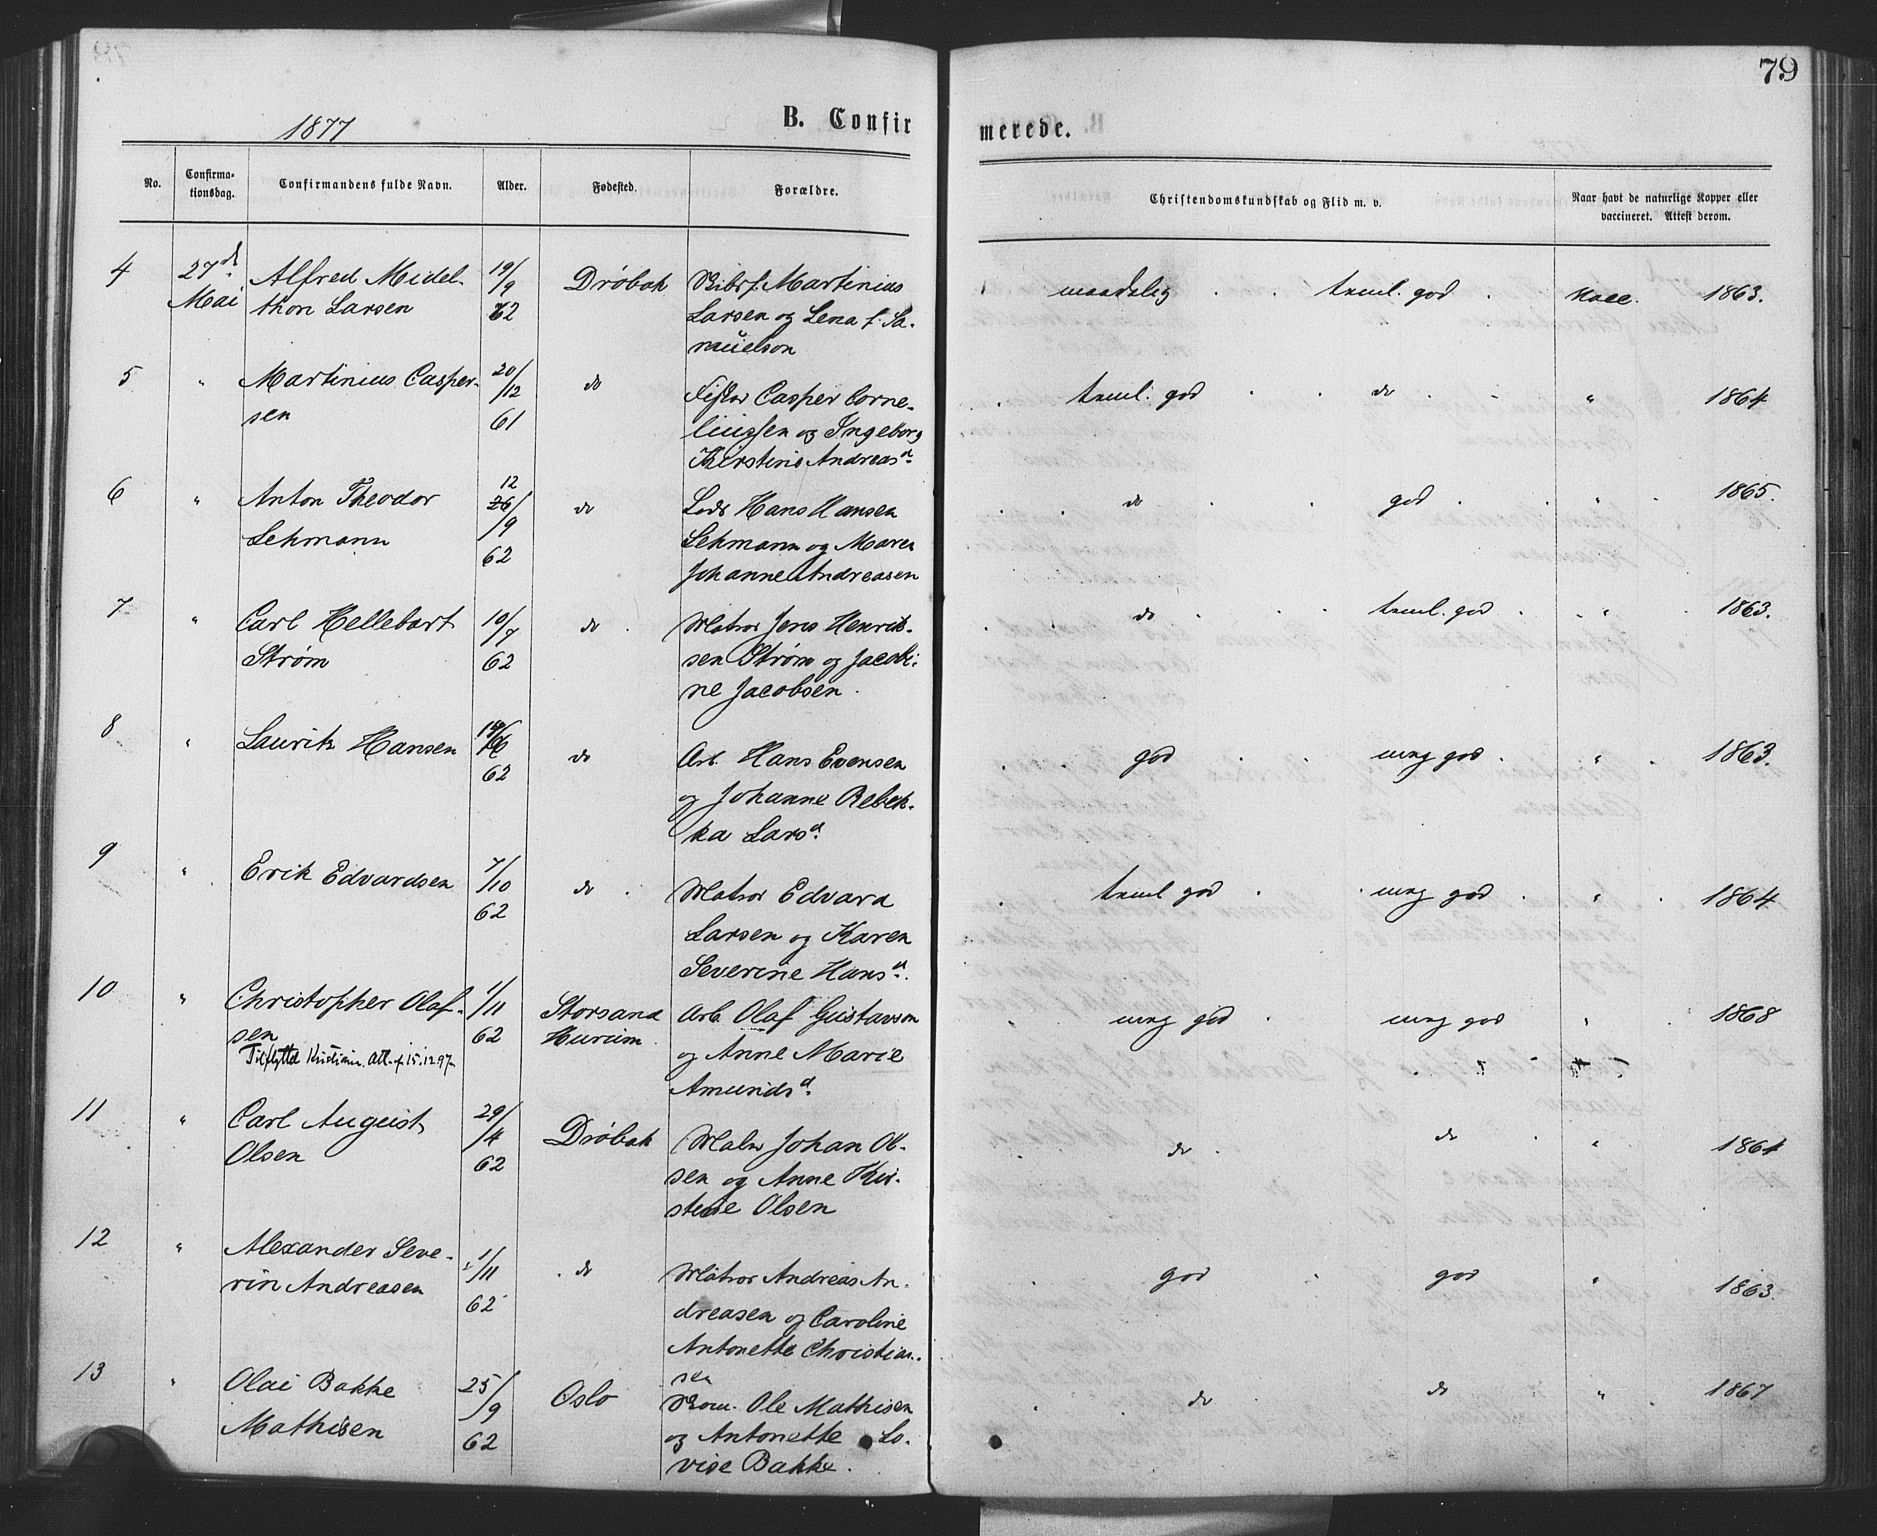 79
1877
B. Confir
merede.
No.
Confirma-
tionsdag.
Confirmandens fulde Navn.
Alder.
Fødested.
Forældre.
Christendomskundskab og Flid m. v.
Naar havt de naturlige Kopper eller
vaccineret. Attest derom.
4 27de Alfred Midel- 19/9 Drøbak Martinius maadelig teml. god vacc. 1863.
Mai thon Larsen 62 Larsen og Lena f. Sa-
muelson
5 " Martinius Casper- 20/12 do Fisker Casper Corne- teml. god do " 1864
sen 61 liussen og Ingeborg
Kirstine Andreasd.
6 " Anton Theodor 12 26/9 do Lods Hans Hansen do god " 1865.
Lehmann 62 Lehmann og Maren
Johanne Andreasen
7 " Carl Hellebart 10/7 do Matros Jens Henrik- do teml. god " 1863.
Strøm 62 sen Strøm og Jacobi-
ne Jacobsen.
8 " Lauritz Hansen 62 do Arb. Hans Evensen god meg god " 1863.
og Johanne Rebek-
ka Larsd.
9 " Erik Edvardsen 7/10 do Matros Edvard teml god meg god " 1864.
62 Larsen og Karen
Severine Hansd.
10 " Christopher Olaf- 1/11 Storsand Arb. Olaf Gustavson meg god meg god " 1868
sen 62 Hurum og Anne Marie
Tilflytted Kristiania. Att. f. 15.12.97 Amundsd.
11 " Carl August 29/4 Drøbak Johan Ol- do do " 1864
Olsen 62 sen og Anne Kir-
stine Olsen
12 " Alexander Seve- 1/11 do Matros Andreas An- god god " 1863.
rin Andreasen 62 dreasen og Caroline
Antonette Christian-
sen
13 " Olai Bakke 25/9 Oslo Ole Mathisen do do " 1867
Mathisen 62 og Antonette Lo-
vise Bakke.